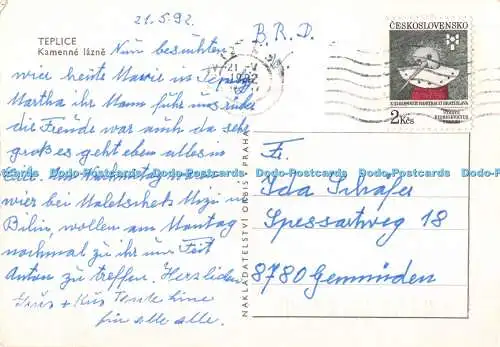 21.5.92.
B.R.D.
TEPLICE
Kamenné lázně
Nun besuchten
wier heute Marie in
Martha ihr Mann fuhr uns rüber
die Freude war auch da sehr
groß es geht eben alles in
wier bei Maletschek Mizi in
Bilin, wollen am Montag
nochmal zu ihr um Feit
Anton zu treffen. Herzlichen
Grüs + Kus Tante Line
für alle alle.
NAKLADATELSTVÍ ORBIS PRAHA
21.V
1992
ČESKOSLOVENSKO
2 Kčs
Fr.
Ida Schäfer
Spessartweg 18
8780 Gemünden
Dodo-Postcards Dodo-Postcards Dodo-Postcards Dodo-Postcards Dodo-Postcards